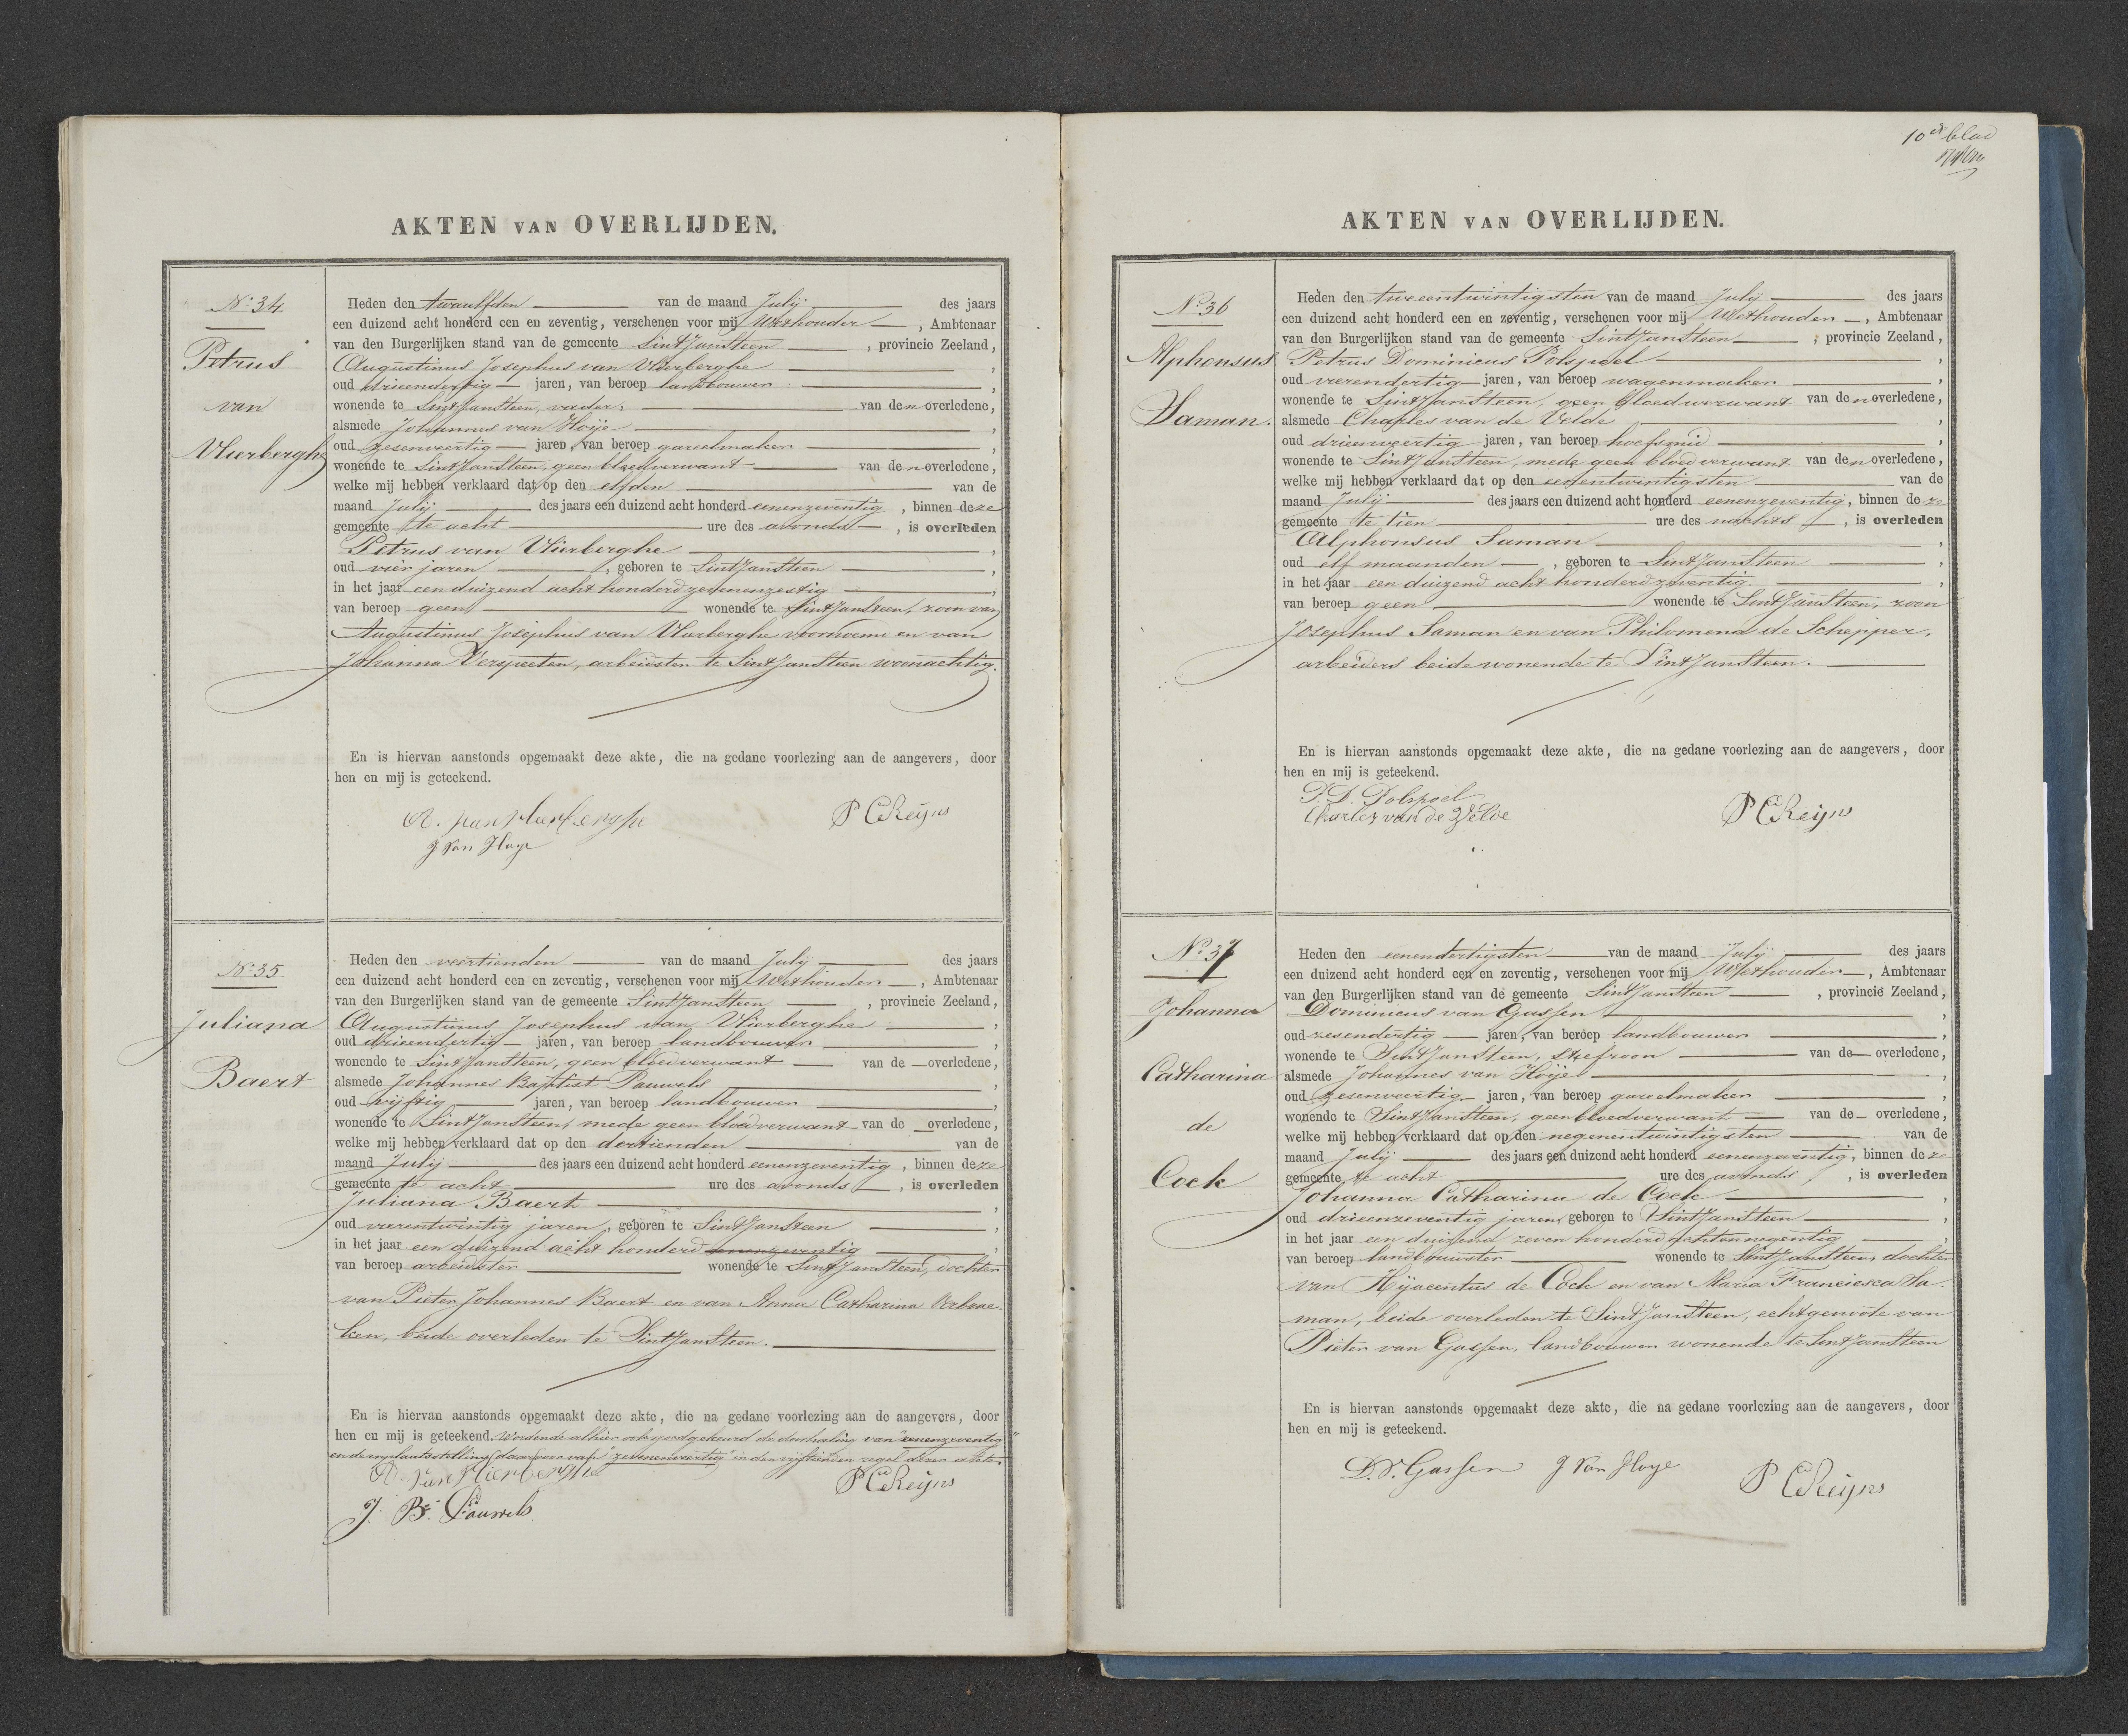 AKTEN VAN OVERLIJDEN.
No. 34
Petrus
van
Vlierberghe
Heden den twaalfden van de maand Julij des jaars
een duizend acht honderd een en zeventig, verschenen voor mij Wethouder, Ambtenaar
van den Burgerlijken stand van de gemeente Sint Jansteen, provincie Zeeland,
Augustinus Josephus van Vlierberghe,
oud drieendertig jaren, van beroep landbouwer,
wonende te Sint Jansteen, vader, van den overledene,
alsmede Johannes van Hoije,
oud zesenveertig jaren, van beroep gareelmaker,
wonende te Sint Jansteen, geen bloedverwant van den overledene,
welke mij hebben verklaard dat op den elfden van de
maand Julij des jaars een duizend acht honderd eenenzeventig, binnen deze
gemeente te acht ure des avonds, is overleden
Petrus van Vlierberghe,
oud vier jaren, geboren te Sint Jansteen,
in het jaar een duizend acht honderd zevenenzestig,
van beroep geen wonende te Sint Jansteen, zoon van
Augustinus Josephus van Vlierberghe voornoemd en van
Johanna Verspeeten, arbeidster te Sint Jansteen woonachtig.
En is hiervan aanstonds opgemaakt deze akte, die na gedane voorlezing aan de aangevers, door
hen en mij is geteekend.
A. van Vlierberghe P C Reijns
J Van Hoye
No. 35
Juliana
Baert
Heden den veertienden van de maand Julij des jaars
een duizend acht honderd een en zeventig, verschenen voor mij Wethouder, Ambtenaar
van den Burgerlijken stand van de gemeente Sint Jansteen, provincie Zeeland,
Augustinus Josephus van Vlierberghe,
oud drieendertig jaren, van beroep landbouwer,
wonende te Sint Jansteen, geen bloedverwant van de overledene,
alsmede Johannes Baptist Pauwels,
oud vijftig jaren, van beroep landbouwer,
wonende te Sint Jansteen, mede geen bloedverwant van de overledene,
welke mij hebben verklaard dat op den dertienden van de
maand Julij des jaars een duizend acht honderd eenenzeventig, binnen deze
gemeente te acht ure des avonds, is overleden
Juliana Baert,
oud vierentwintig jaren, geboren te Sint Jansteen,
in het jaar een duizend acht honderd eenenzeventig,
van beroep arbeidster wonende te Sint Jansteen, dochter
van Pieter Johannes Baert en van Anna Catharina Verbrae-
ken, beide overleden te Sint Jansteen.
En is hiervan aanstonds opgemaakt deze akte, die na gedane voorlezing aan de aangevers, door
hen en mij is geteekend. Wordende alhier ook goedgekeurd de doorhaling van "eenenzeventig"
en de inplaatsstelling daarvoor van "zevenenveertig" in den vijftienden regel dezer akte.
A. van Vlierberghe P C Reijns
J. B. Pauwels
10e blad
AKTEN VAN OVERLIJDEN.
No. 36
Alphonsus
Saman.
Heden den tweeentwintigsten van de maand Julij des jaars
een duizend acht honderd een en zeventig, verschenen voor mij Wethouder, Ambtenaar
van den Burgerlijken stand van de gemeente Sint Jansteen, provincie Zeeland,
Petrus Dominicus Polspoel,
oud vierendertig jaren, van beroep wagenmaker,
wonende te Sint Jansteen, geen bloedverwant van den overledene,
alsmede Charles van de Velde,
oud drieenveertig jaren, van beroep hoefsmid,
wonende te Sint Jansteen, mede geen bloedverwant van den overledene,
welke mij hebben verklaard dat op den eenentwintigsten van de
maand Julij des jaars een duizend acht honderd eenenzeventig, binnen deze
gemeente te tien ure des nachts, is overleden
Alphonsus Saman,
oud elf maanden, geboren te Sint Jansteen,
in het jaar een duizend acht honderd zeventig,
van beroep geen wonende te Sint Jansteen, zoon
Josephus Saman en van Philomena de Schepper,
arbeiders beide wonende te Sint Jansteen.
En is hiervan aanstonds opgemaakt deze akte, die na gedane voorlezing aan de aangevers, door
hen en mij is geteekend.
P. D. Polspoel
Charles van de Velde P C Reijns
No. 37
Johanna
Catharina
de
Cock
Heden den eenendertigsten van de maand Julij des jaars
een duizend acht honderd een en zeventig, verschenen voor mij Wethouder, Ambtenaar
van den Burgerlijken stand van de gemeente Sint Jansteen, provincie Zeeland,
Dominicus van Gassen,
oud zesendertig jaren, van beroep landbouwer,
wonende te Sint Jansteen, stiefzoon van de overledene,
alsmede Johannes van Hoije,
oud zesenveertig jaren, van beroep gareelmaker,
wonende te Sint Jansteen, geen bloedverwant van de overledene,
welke mij hebben verklaard dat op den negenentwintigsten van de
maand Julij des jaars een duizend acht honderd eenenzeventig, binnen deze
gemeente te acht ure des avonds, is overleden
Johanna Catharina de Cock,
oud drieenzeventig jaren, geboren te Sint Jansteen,
in het jaar een duizend zeven honderd achtennegentig,
van beroep landbouwster wonende te Sint Jansteen, dochter
van Hijacentus de Cock en van Maria Franciesca Sa-
man, beide overleden te Sint Jansteen, echtgenoote van
Pieter van Gassen, landbouwer wonende te Sint Jansteen
En is hiervan aanstonds opgemaakt deze akte, die na gedane voorlezing aan de aangevers, door
hen en mij is geteekend.
D. V. Gassen J Van Hoye P C Reijns